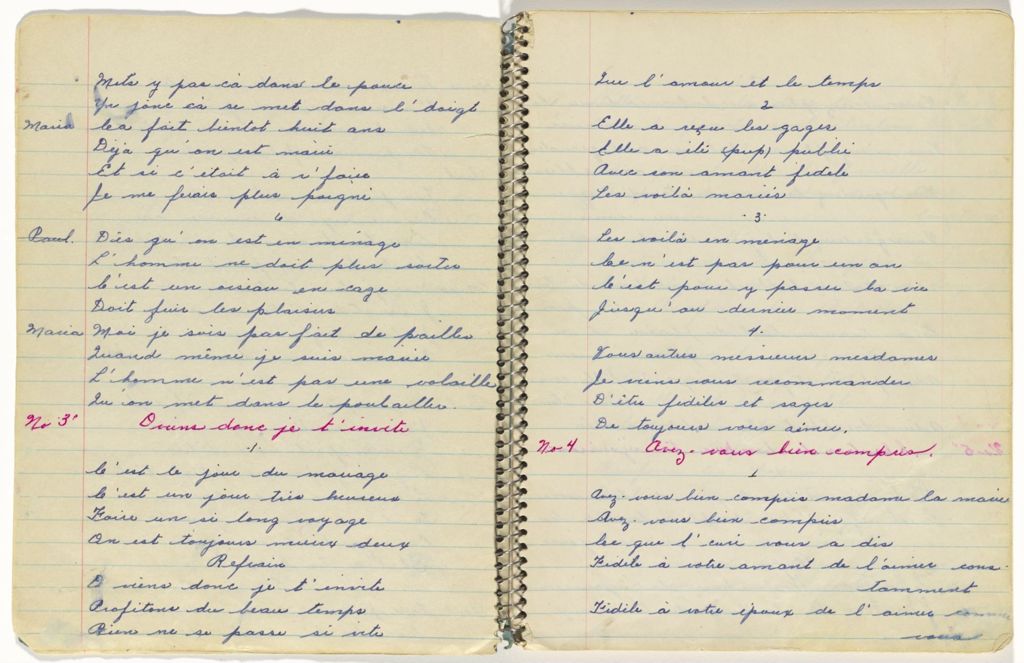 Mets y pas ça dans le pouce
Yn jonc ça se met dans l'doigt
Maria Ca fait bientot huit ans
Déja qu'on est marié
Et si c'était à r'faire
Je me ferais plus poigné
6
Paul. Dès qu'on est en ménage
L'homme ne doit plus sortir
C'est un oiseau en cage
Doit fuir les plaisirs
Maria Moi je suis pas fait de pailler
Quand même je suis mariée
L'homme n'est pas une volaille
Qu on met dans le poulailler.
No 3' O viens donc je t'invite
1.
C'est le jour du mariage
C'est un jour très heureux
Faire un si long voyage
On est toujours mieux deux
Refrain
O viens donc je t'invite
Profitons du beau temps
Rien ne se passe si vite
Que l'amour et le temps
2
Elle a reçu les gages
Elle a été (pup) publié
Avec son amant fidele
Les voilà mariés
3.
Les voilà en ménage
Ce n'est pas pour un an
C'est pour y passer la vie
Jusqu'au dernier moment
4.
Vous autres messieurs mesdames
Je viens vous recommander
D'être fidèles et sages
De toujours vous aimer.
No 4 Avez-vous bien compris.
1
Avez-vous bien compris madame la mariée
Avez-vous bien compris
Ce que l'curé vous a dis
Fidèle à votre amant de l'aimer cons-
tamment
Fidèle à votre époux de l'aimer comme
vous